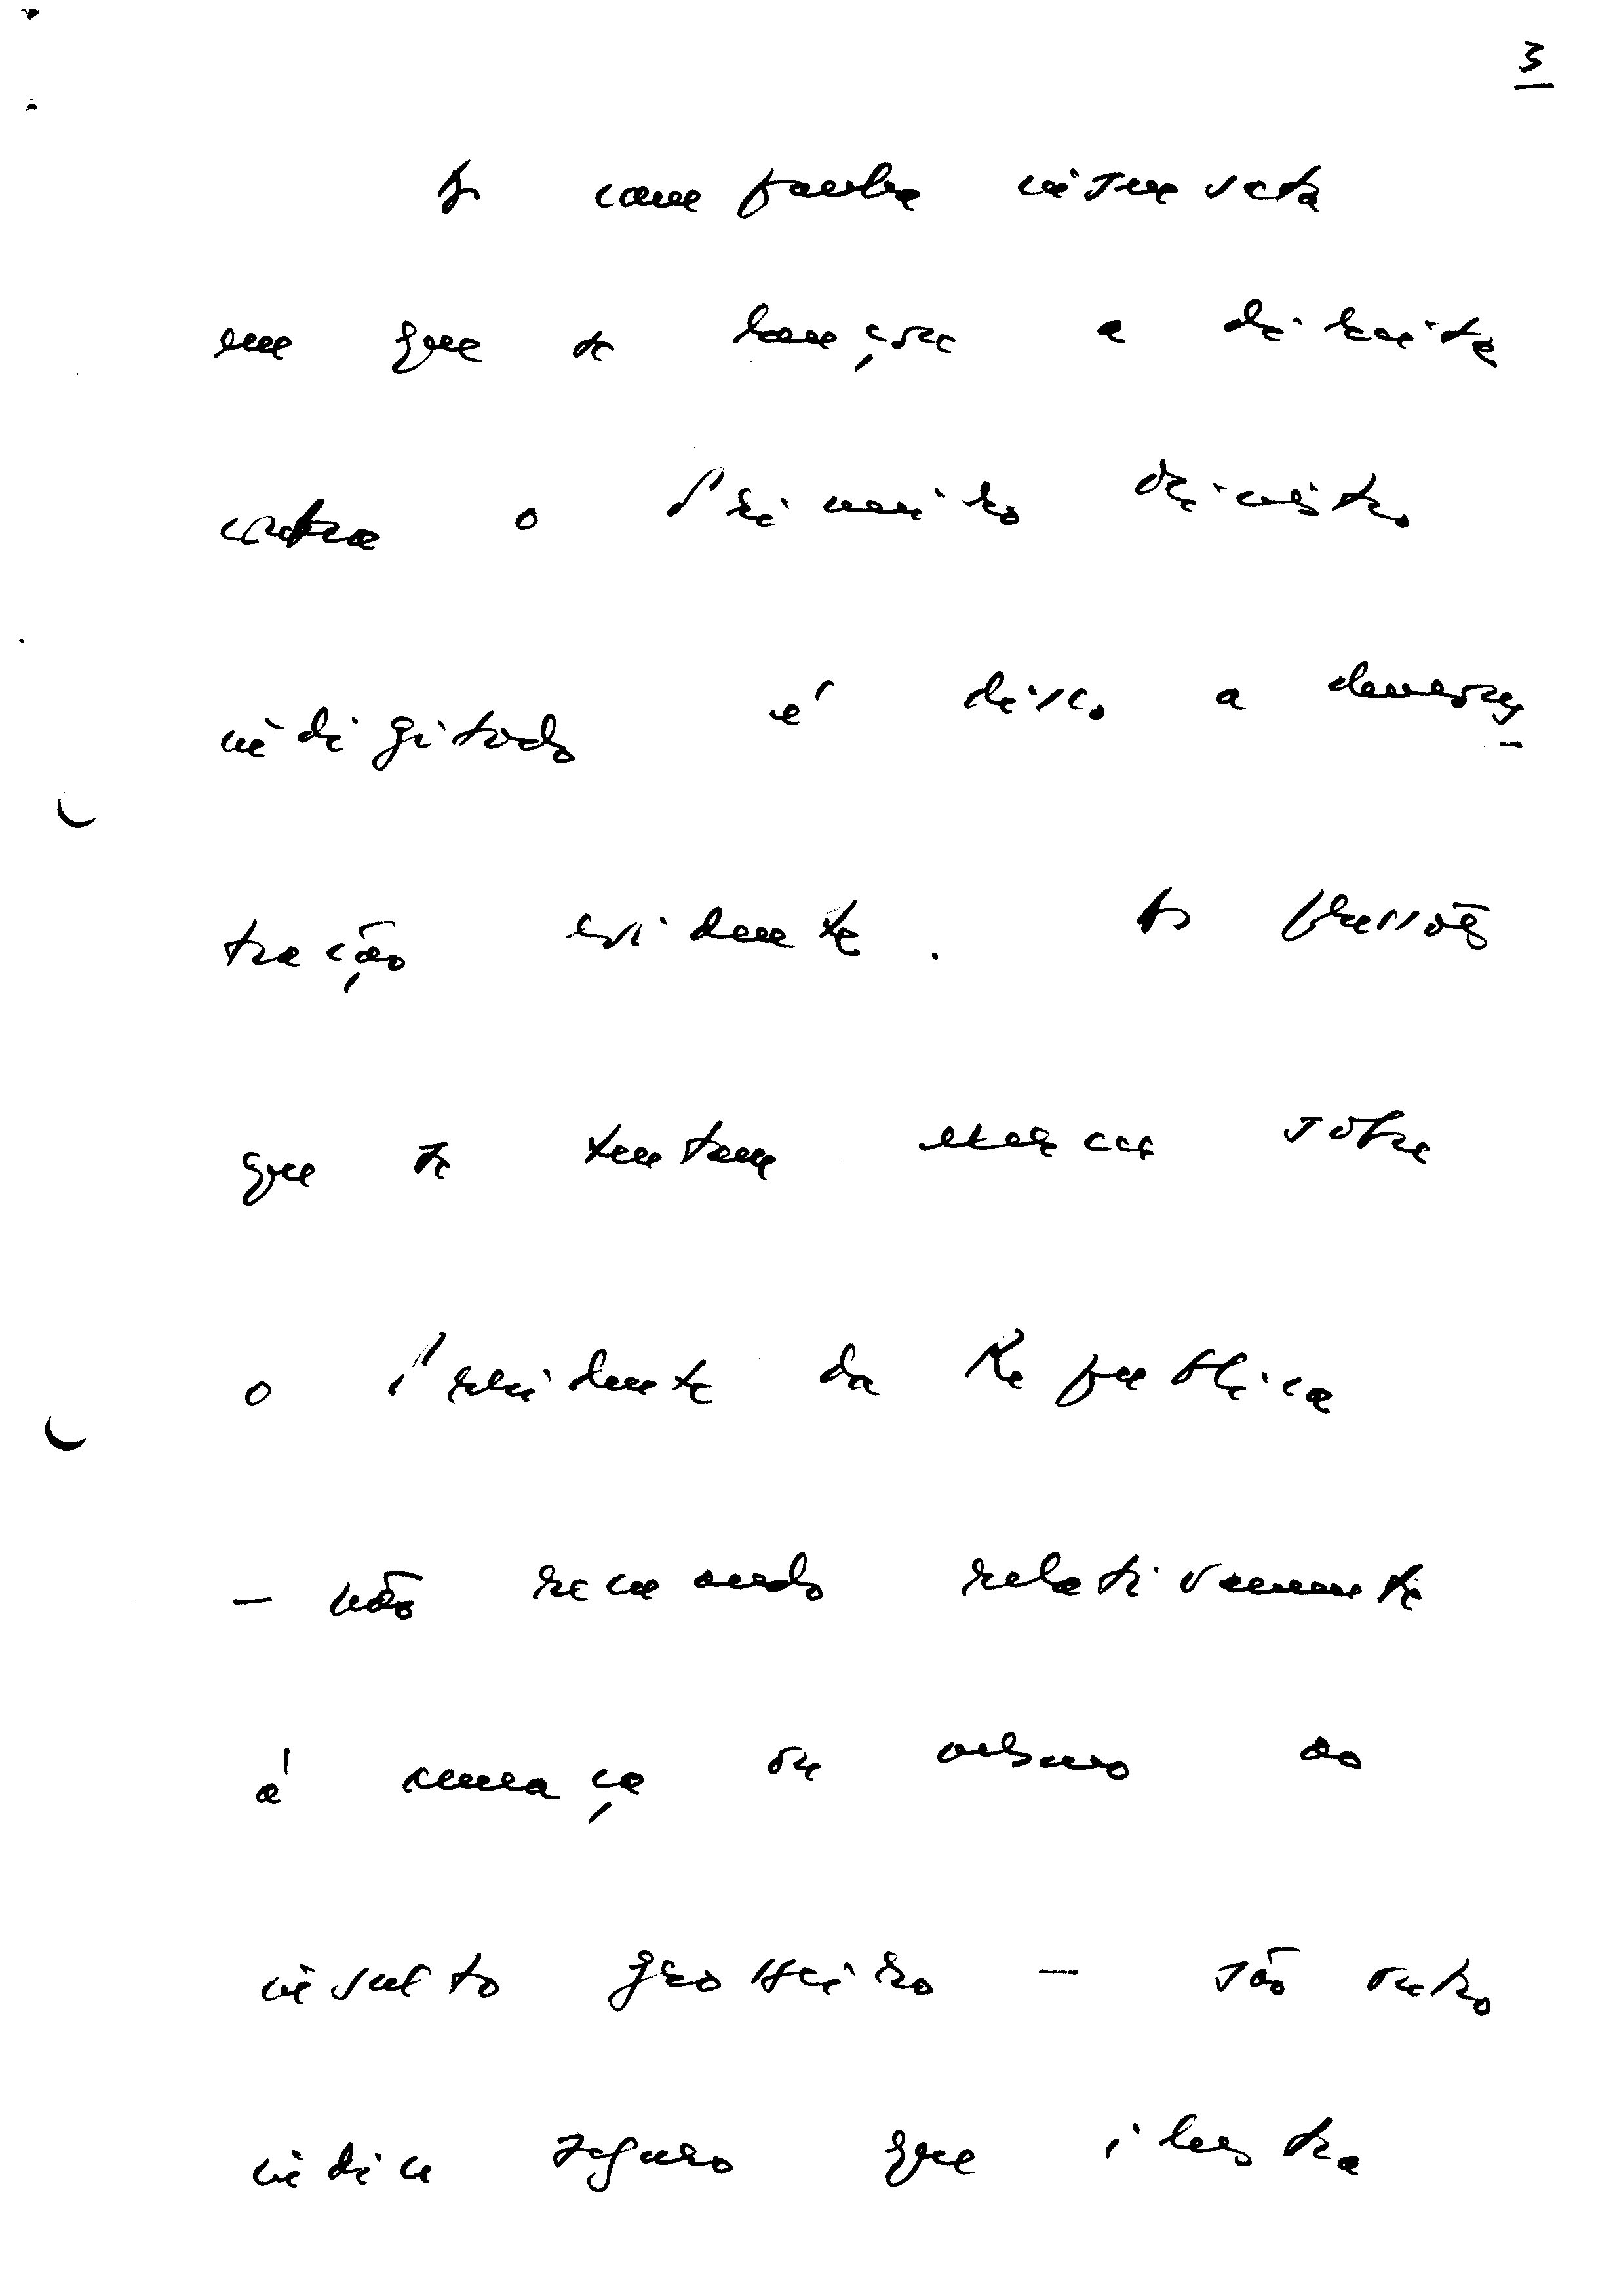 3
A campanha insensata
em que se lançou a direita
contra o Primeiro Ministro
indigitado é disso a demons-
tração evidente. As pressões
que se tentam exercer sobre
o Presidente da Republica
- não recuando relativamente
á ameaça ou mesmo ao
insulto grosseiro - são outro
indice seguro que ilustra